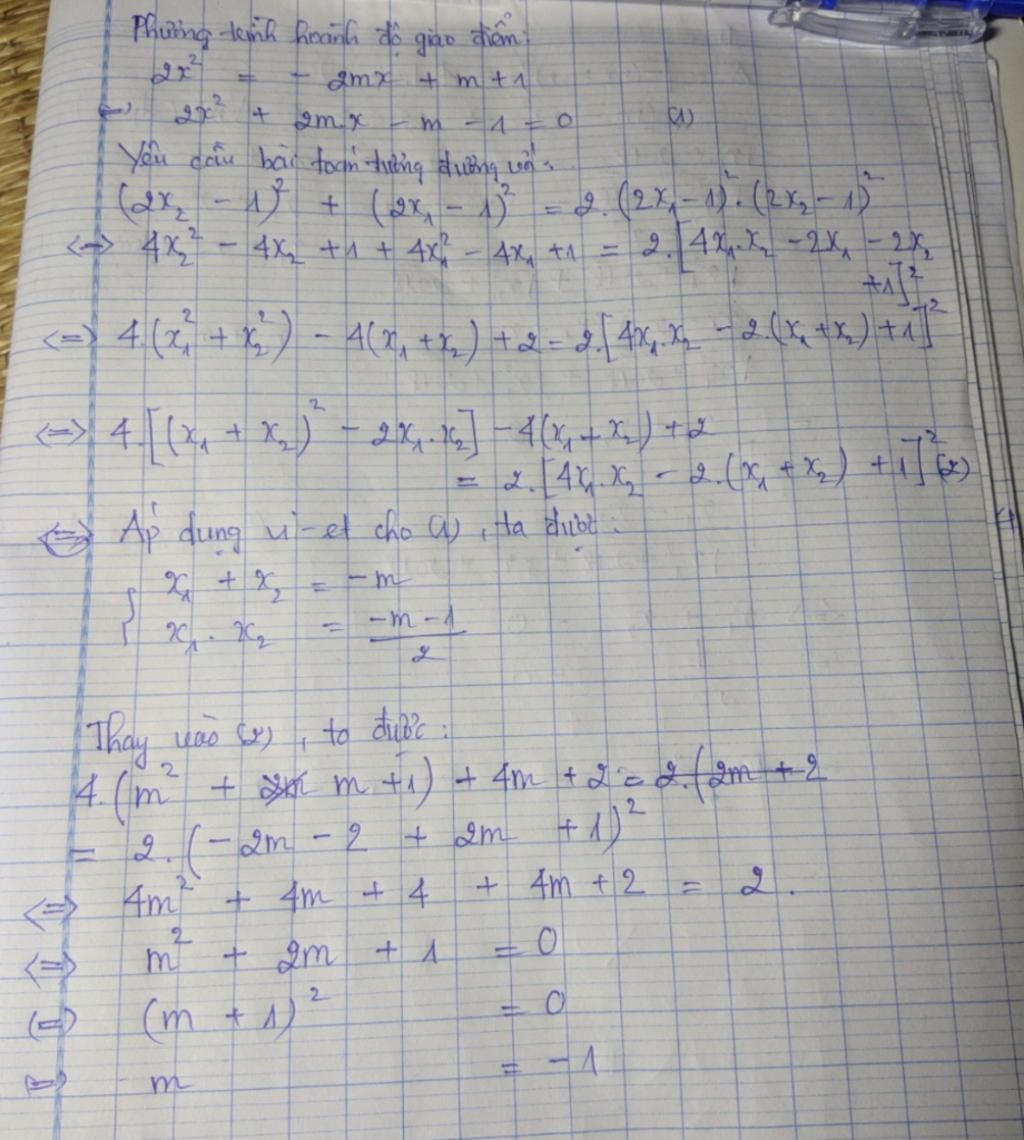 Phương trình hoành độ giao điểm:
2x² = - 2mx + m + 1
<=> 2x² + 2mx - m - 1 = 0 (1)
Yêu cầu bài toán tương đương với:
(2x₂ - 1)² + (2x₁ - 1)² = 2.(2x₁ - 1)².(2x₂ - 1)²
<=> 4x₂² - 4x₂ + 1 + 4x₁² - 4x₁ + 1 = 2.[4x₁.x₂ - 2x₁ - 2x₂
+ 1]²
<=> 4.(x₁² + x₂²) - 4(x₁ + x₂) + 2 = 2.[4x₁.x₂ - 2.(x₁ + x₂) + 1]²
<=> 4.[(x₁ + x₂)² - 2x₁.x₂] - 4(x₁ + x₂) + 2
= 2.[4x₁.x₂ - 2.(x₁ + x₂) + 1]² (2)
<=> Áp dụng vi-et cho (1), ta được:
{ x₁ + x₂ = -m
x₁ . x₂ = (-m - 1)/2
Thay vào (2), ta được:
4.(m² + m + 1) + 4m + 2 = 2.(2m + 2
= 2.(-2m - 2 + 2m + 1)²
<=> 4m² + 4m + 4 + 4m + 2 = 2.
<=> m² + 2m + 1 = 0
<=> (m + 1)² = 0
<=> m = -1